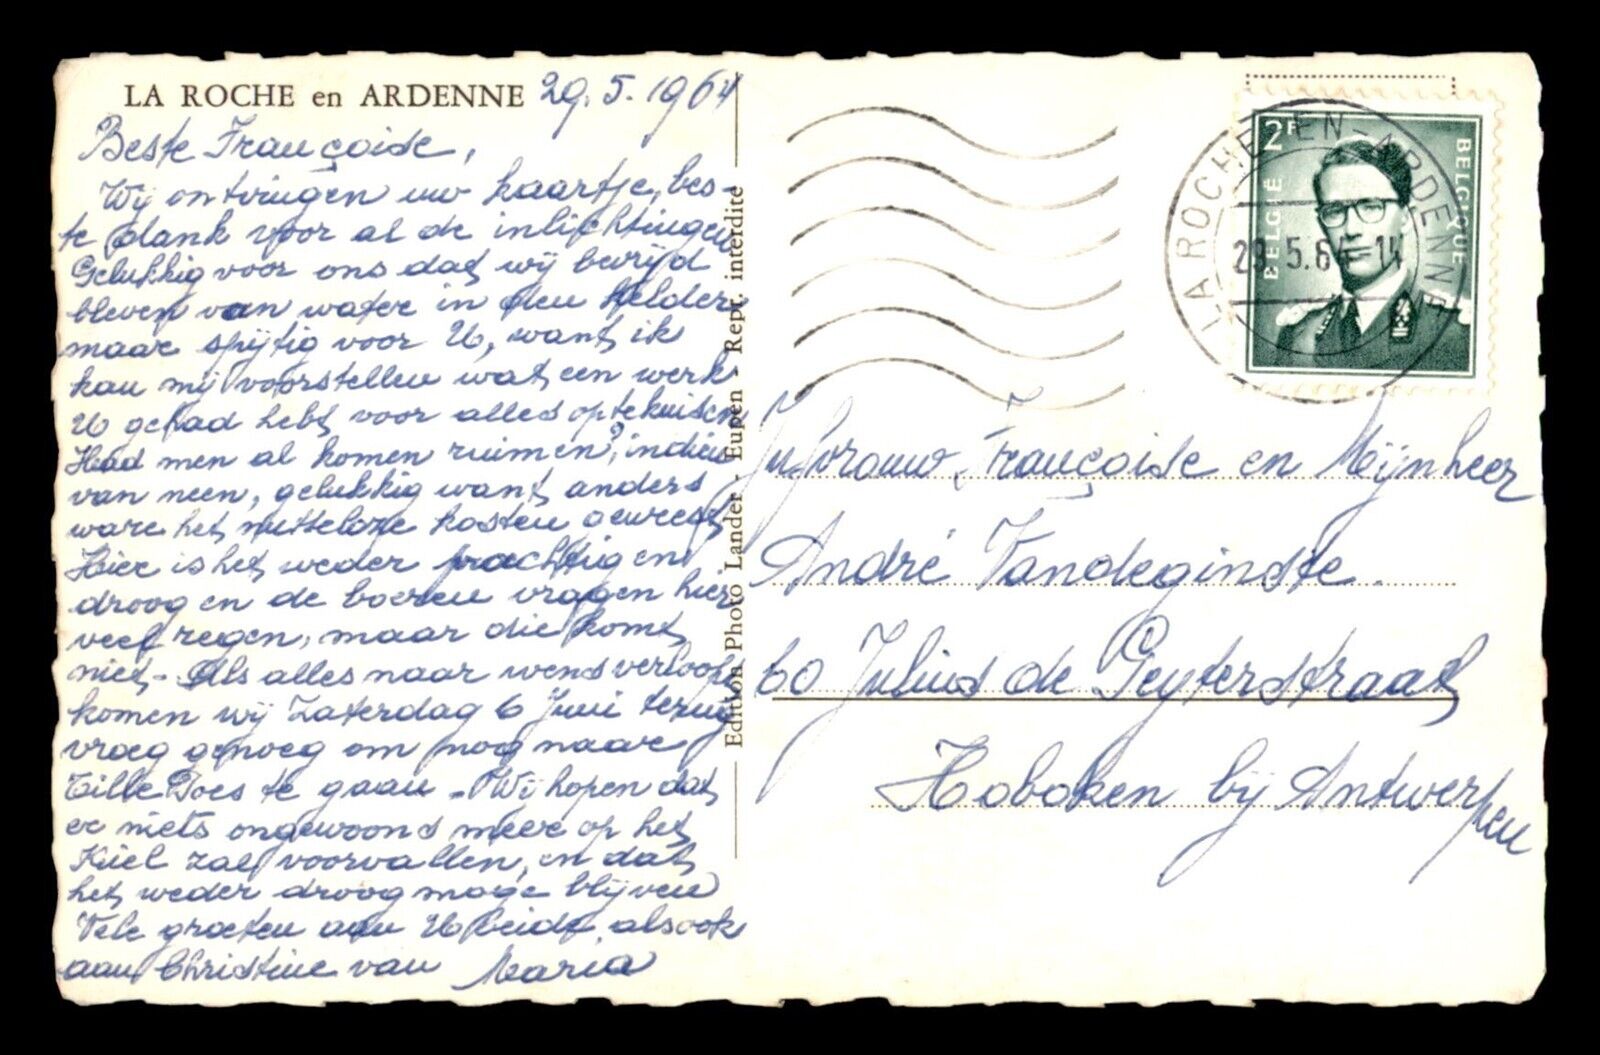 LA ROCHE en ARDENNE 29.5.1964
Beste Françoise,
Wij ontvingen uw kaartje, bes-
te dank voor al de inlichtingen
Gelukkig voor ons dat wij bevrijd
bleven van water in den kelder
maar spijtig voor U, want ik
kan mij voorstellen wat een werk
U gehad hebt voor alles op te kuisen
Had men al komen ruimen?, indien
van neen, gelukkig want anders
ware het nutteloze kosten geweest
Hier is het weder prachtig en
droog en de boeren vragen hier
veel regen, maar die komt
niet - Als alles naar wens verloopt
komen wij Zaterdag 6 Juni terug
vroeg genoeg om nog naar
Tille Goes te gaan - Wij hopen dat
er niets ongewoons meer op het
Kiel zal voorvallen, en dat
het weder droog moge blijven
Vele groeten aan U beide, alsook
aan Christine van Maria
Edition Photo Lander - Eupen - Repr. interdite
LA ROCHE-EN-ARDENNE
29.5.64-14
2F
BELGIË
BELGIQUE
Jufvrouw Françoise en Mijnheer
André Vandeginste.
60 Julius de Geyterstraat
Hoboken bij Antwerpen